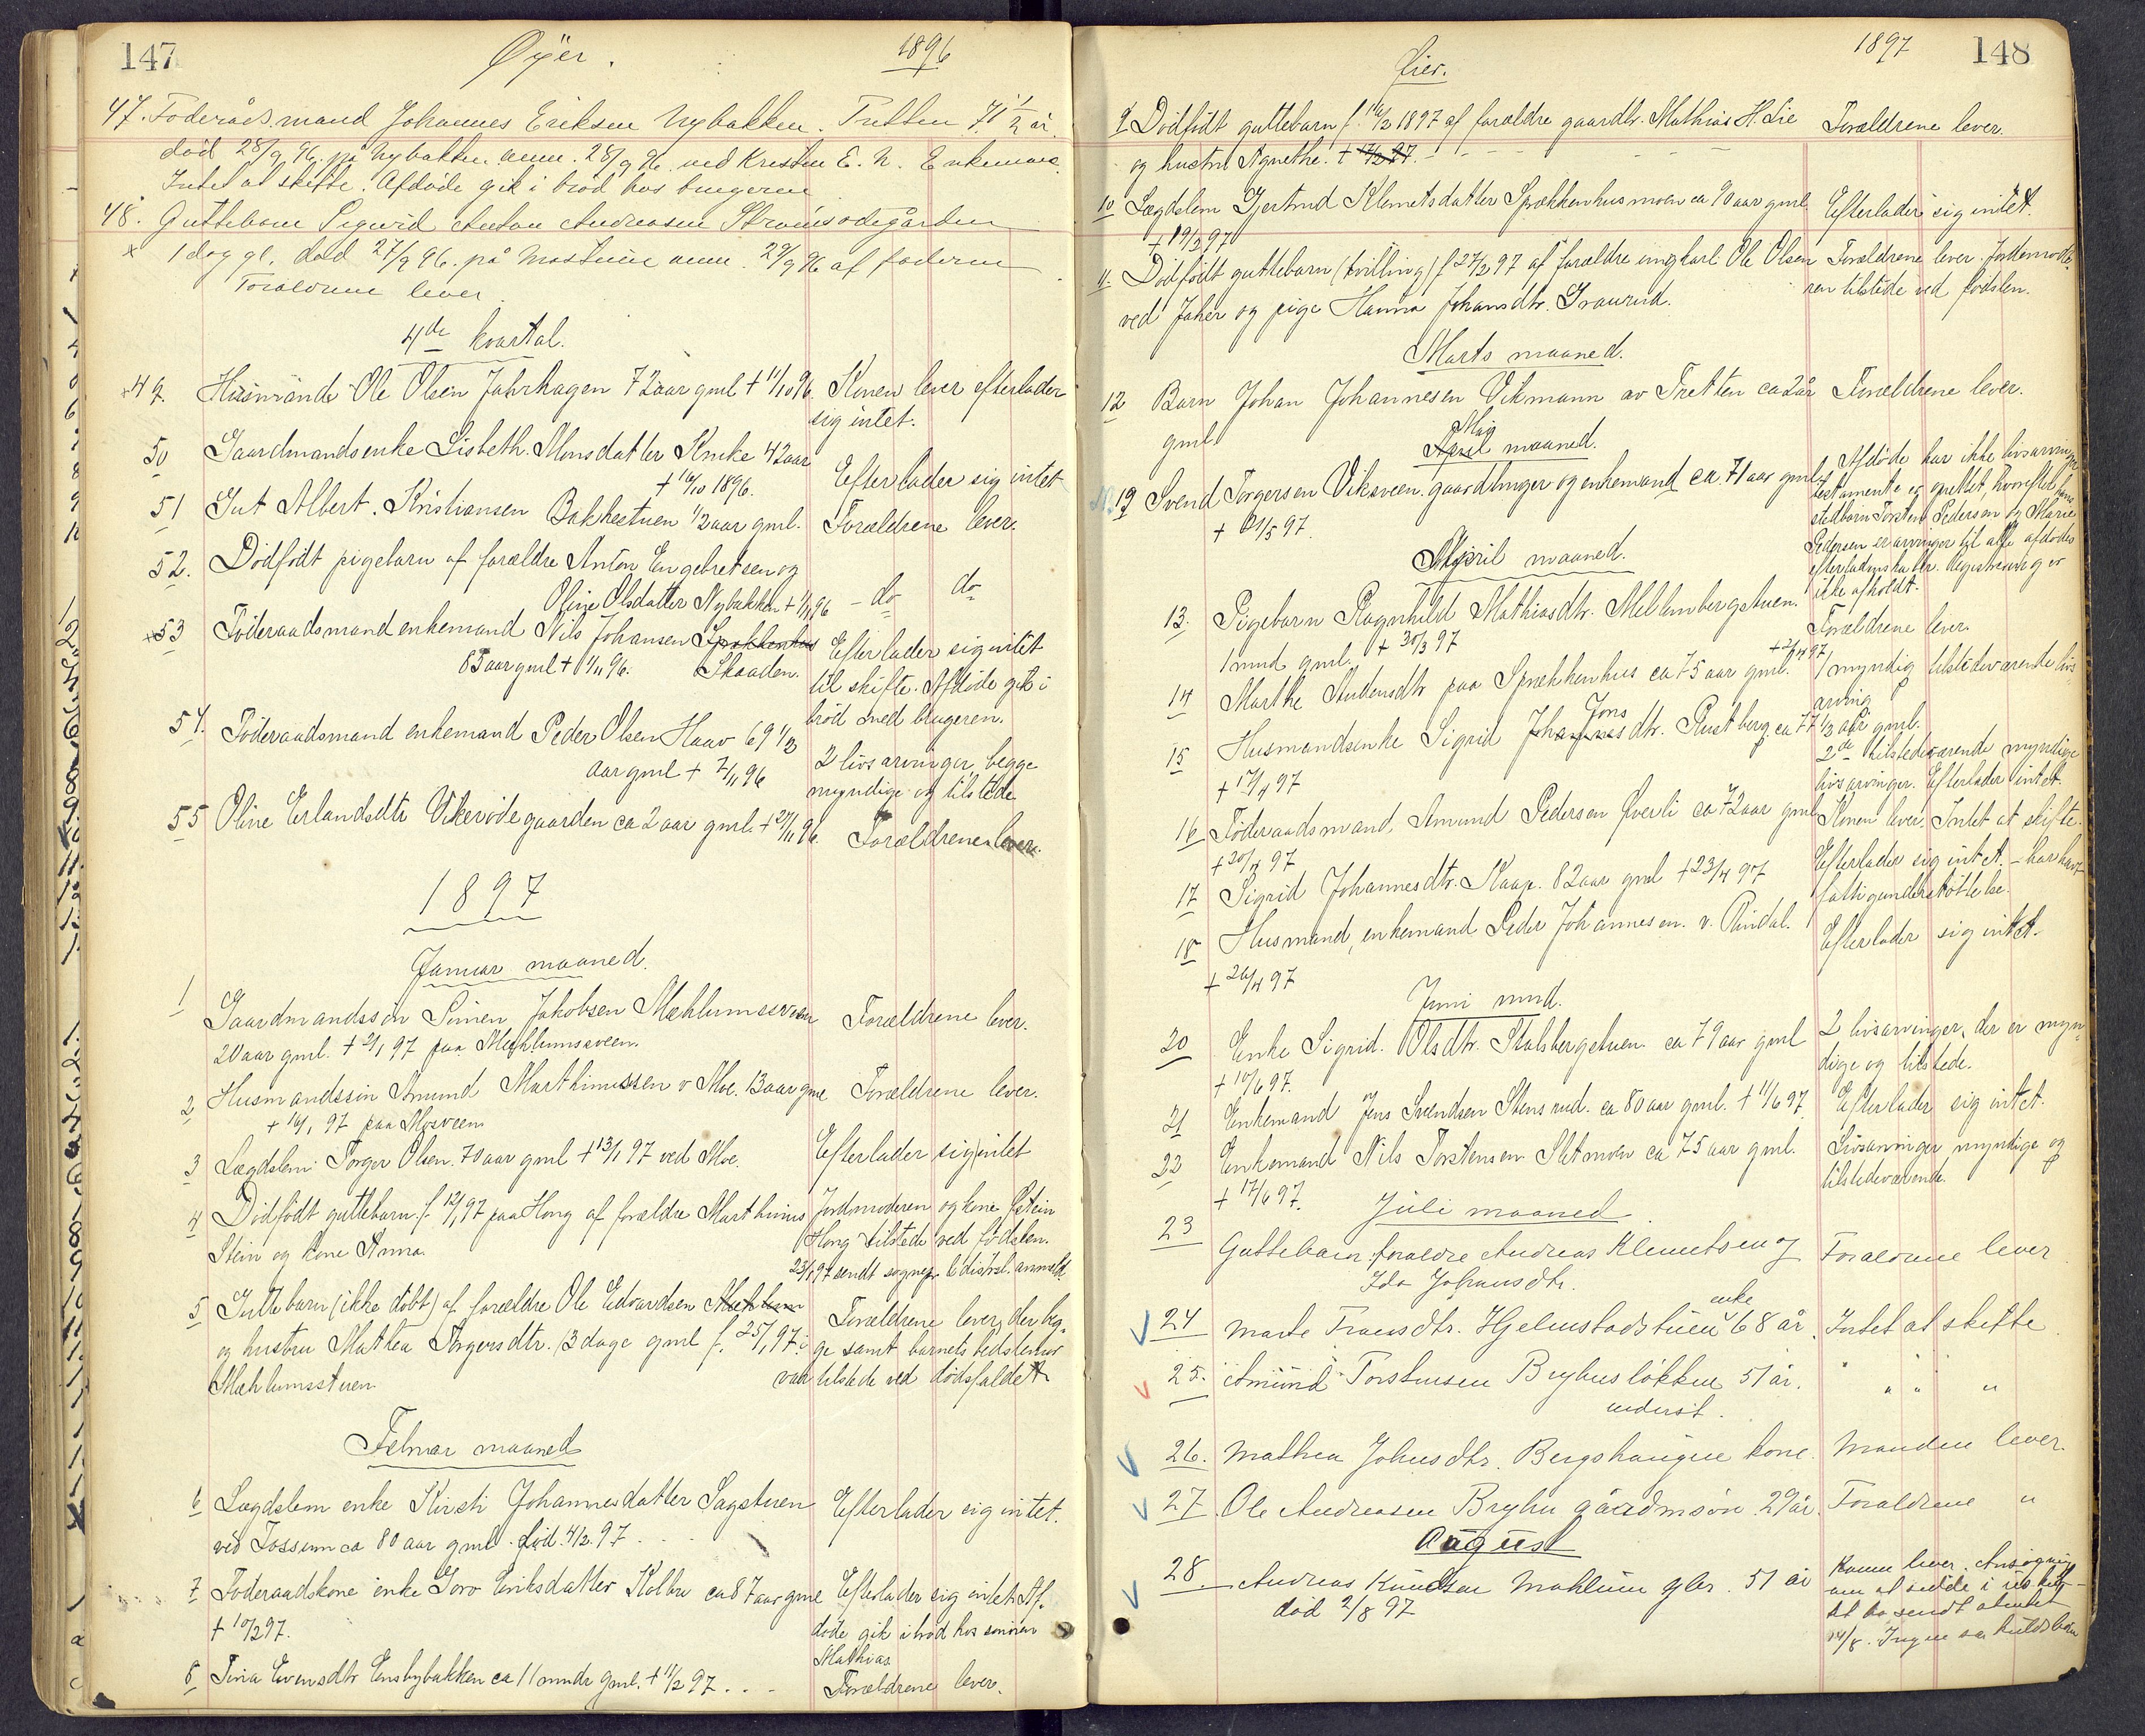 147
Øyer.
1896
47. Foderådsmand Johannes Eriksen Nybakken. Tretten 71 1/2 år.
død 28/9 96. på Nybakken anm. 28/9 96 ved Kristen E. N. Enkemand.
Intet at skifte. Afdøde gik i brød hos brugeren
48. Guttebarn Sigurd Anton Andreasen Strømsødegården
x 1 dag gl. død 27/9 96. på Mostuen anm. 29/9 96 af faderen
Forældrene lever.
4de kvartal.
49. Husmand Ole Olsen Jahrhagen 72 aar gml + 11/10 96. Konen lever efterlader
sig intet.
50 Gaardmandsenke Lisbeth Monsdatter Knike 42 aar
+ 16/10 1896. Efterlader sig intet
51 Gut Albert Kristiansen Bakkestuen 1/2 aar gml. Forældrene lever.
52. Dødfødt pigebarn af forældre Anton Engebretsen og
Oline Olsdatter Nybakken + 1/11 96 – do do
x53 Føderaadsmand enkemand Nils Johansen Sprækkenhus Efterlader sig intet
85 aar gml + 1/11 96. Skaaden. til skifte. Afdøde gik i
brød med brugeren.
54. Føderaadsmand enkemand Peder Olsen Haav 69 1/2
aar gml + 7/11 96 2 livsarvinger, begge
myndige og tilstede
55 Oline Erlandsdtr Vikerødegaarden ca 2 aar gml. + 27/11 96. Forældrene lever.
1897
Januar maaned.
1 Gaardmandssøn Simen Jakobsen Mæhlumssveen Forældrene lever.
20 aar gml. + 2/1 97 paa Mæhlumsveen.
2 Husmandssøn Amund Marthinussen v Moe. 13 aar gml Forældrene lever.
+ 10/1 97 paa Mosveen
3 Lægdslem Torger Olsen. 70 aar gml + 13/1 97 ved Moe. Efterlader sig intet
4 Dødfødt guttebarn f. 12/1 97 paa Hong af forældre Marthinus Jordmoderen og kone Østein
Stein og kone Anna. Hong tilstede ved fødslen.
23/1 97 sendt sognepr. & distrsl. anmeldt
5 Guttebarn (ikke døbt) af forældre Ole Edvardsen Mæhlum Forældrene lever, der beg-
og hustru Mathea Torgersdtr. 3 dage gml f. 25/1 97 i ge samt barnets bedstemor
Mæhlumsstuen var tilstede ved dødsfaldet
Februar maaned
6 Lægdslem enke Kirsti Johannesdatter Sagstuen Efterlader sig intet.
ved Fossum ca 80 aar gml. død. 4/2. 97
7 Foderaadskone enke Goro Eriksdatter Kolbu ca 87 aar gml Efterlader sig intet. Af-
+ 10/2 97. døde gik i brød hos sønnen
Mathias
8 Tina Evensdtr Ensbybakken ca 11 mndr gml. + 11/2 97. Forældrene lever.
Øier.
1897
148
9 Dødfødt guttebarn f. 16/2 1897 af forældre gaardbr. Mathias H. Lie Forældrene lever.
og hustru Agnethe. + 17/2 97.
10 Lægdslem Gjertrud Klemetsdatter Sprækkenhusmoen ca 90 aar gml Efterlader sig intet.
+ 19/2 97
11. Dødfødt guttebarn (tvilling) f 27/2 97 af forældre ungkarl Ole Olsen Forældrene lever. Jordemode-
ved Jaher og pige Hanna Johansdtr. Graurud. ren tilstede ved fødslen.
Marts maaned.
12 Barn Johan Johannesen Vikmann av Tretten ca 2 år Forældrene lever.
gml
Mai
April maaned.
N. 19 Svend Torgersen Viksveen gaardbruger og enkemand ca 71 aar gml Afdøde har ikke livsarvinger
+ 21/5 97. testamente er oprettet, hvorefter hans
stedbørn Torsten Pedersen og Marie
Pedersen er arvinger til alle afdødes
efterladenskaber. Registrering er
ikke afholdt.
April maaned.
13. Pigebarn Ragnhild Mathiasdtr. Mellembergstuen. Forældrene lever.
1 mnd gml. + 30/3 97
14 Marthe Andersdtr paa Sprækkenhus ca 75 aar gml. + 2/4 97 1 myndig tilstedeværende livs-
arving
15 Husmandsenke Sigrid Johannesdtr. Jons Rustberg ca 77 1/2 aar gml.
+ 17/4 97 2de tilstedeværende myndige
livsarvinger. Efterlader intet.
16 Føderaadsmand Amund Pedersen Øverli ca 72 aar gml Konen lever. Intet at skifte.
+ 20/4 97
17 Sigrid Johannesdtr. Kaap. 82 aar gml + 23/4 97 Efterlader sig intet. – har havt
fattigunderstøttelse.
18 Husmand, enkemand Peder Johannesen. v. Rindal. Efterlader sig intet.
+ 26/4 97
Juni mnd.
20 Enke Sigrid Olsdtr. Stalsbergstuen ca 79 aar gml 2 livsarvinger, der er myn-
+ 10/6 97. dige og tilstede.
21 Enkemand Jens Svendsen Stensrud. ca 80 aar gml. + 11/6 97 Efterlader sig intet.
22 Enkemand Nils Torstensen Sletmoen ca 75 aar gml. Livsarvinger myndige og
+ 17/6 97. tilstedeværende.
Juli maaned
23 Guttebarn forældre Andreas Klemetsen og Forældrene lever
Ida Johansdtr.
24 Marte Fransdtr. Hjelmstadstuen enke 68 år. Intet at skifte
25. Amund Torstensen Bryhusløkken 51 år. " " "
underst.
26. Mathea Johnsdtr. Bergshaugen kone. Manden lever.
27 Ole Andreasen Bryhn gårdmsøn. 29 år. Forældrene "
August
28. Andreas Knudsen Mæhlum gbr. 51 år Konen lever. Ansøgning
død 2/8 97 om at sidde i
14/8. Ingen